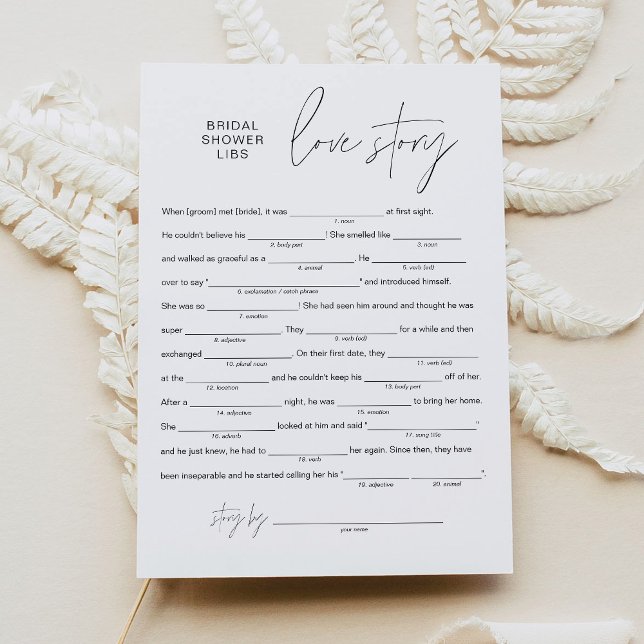 BRIDAL
SHOWER
LIBS
love story
When [groom] met [bride], it was ____________ at first sight.
1. noun
He couldn't believe his ____________! She smelled like ____________
2. body part 3. noun
and walked as graceful as a ____________. He ____________
4. animal 5. verb (ed)
over to say "____________" and introduced himself.
6. exclamation / catch phrase
She was so ____________! She had seen him around and thought he was
7. emotion
super ____________. They ____________ for a while and then
8. adjective 9. verb (ed)
exchanged ____________. On their first date, they ____________
10. plural noun 11. verb (ed)
at the ____________ and he couldn't keep his ____________ off of her.
12. location 13. body part
After a ____________ night, he was ____________ to bring her home.
14. adjective 15. emotion
She ____________ looked at him and said "____________"
16. adverb 17. song title
and he just knew, he had to ____________ her again. Since then, they have
18. verb
been inseparable and he started calling her his "____________ ____________".
19. adjective 20. animal
story by ____________
your name